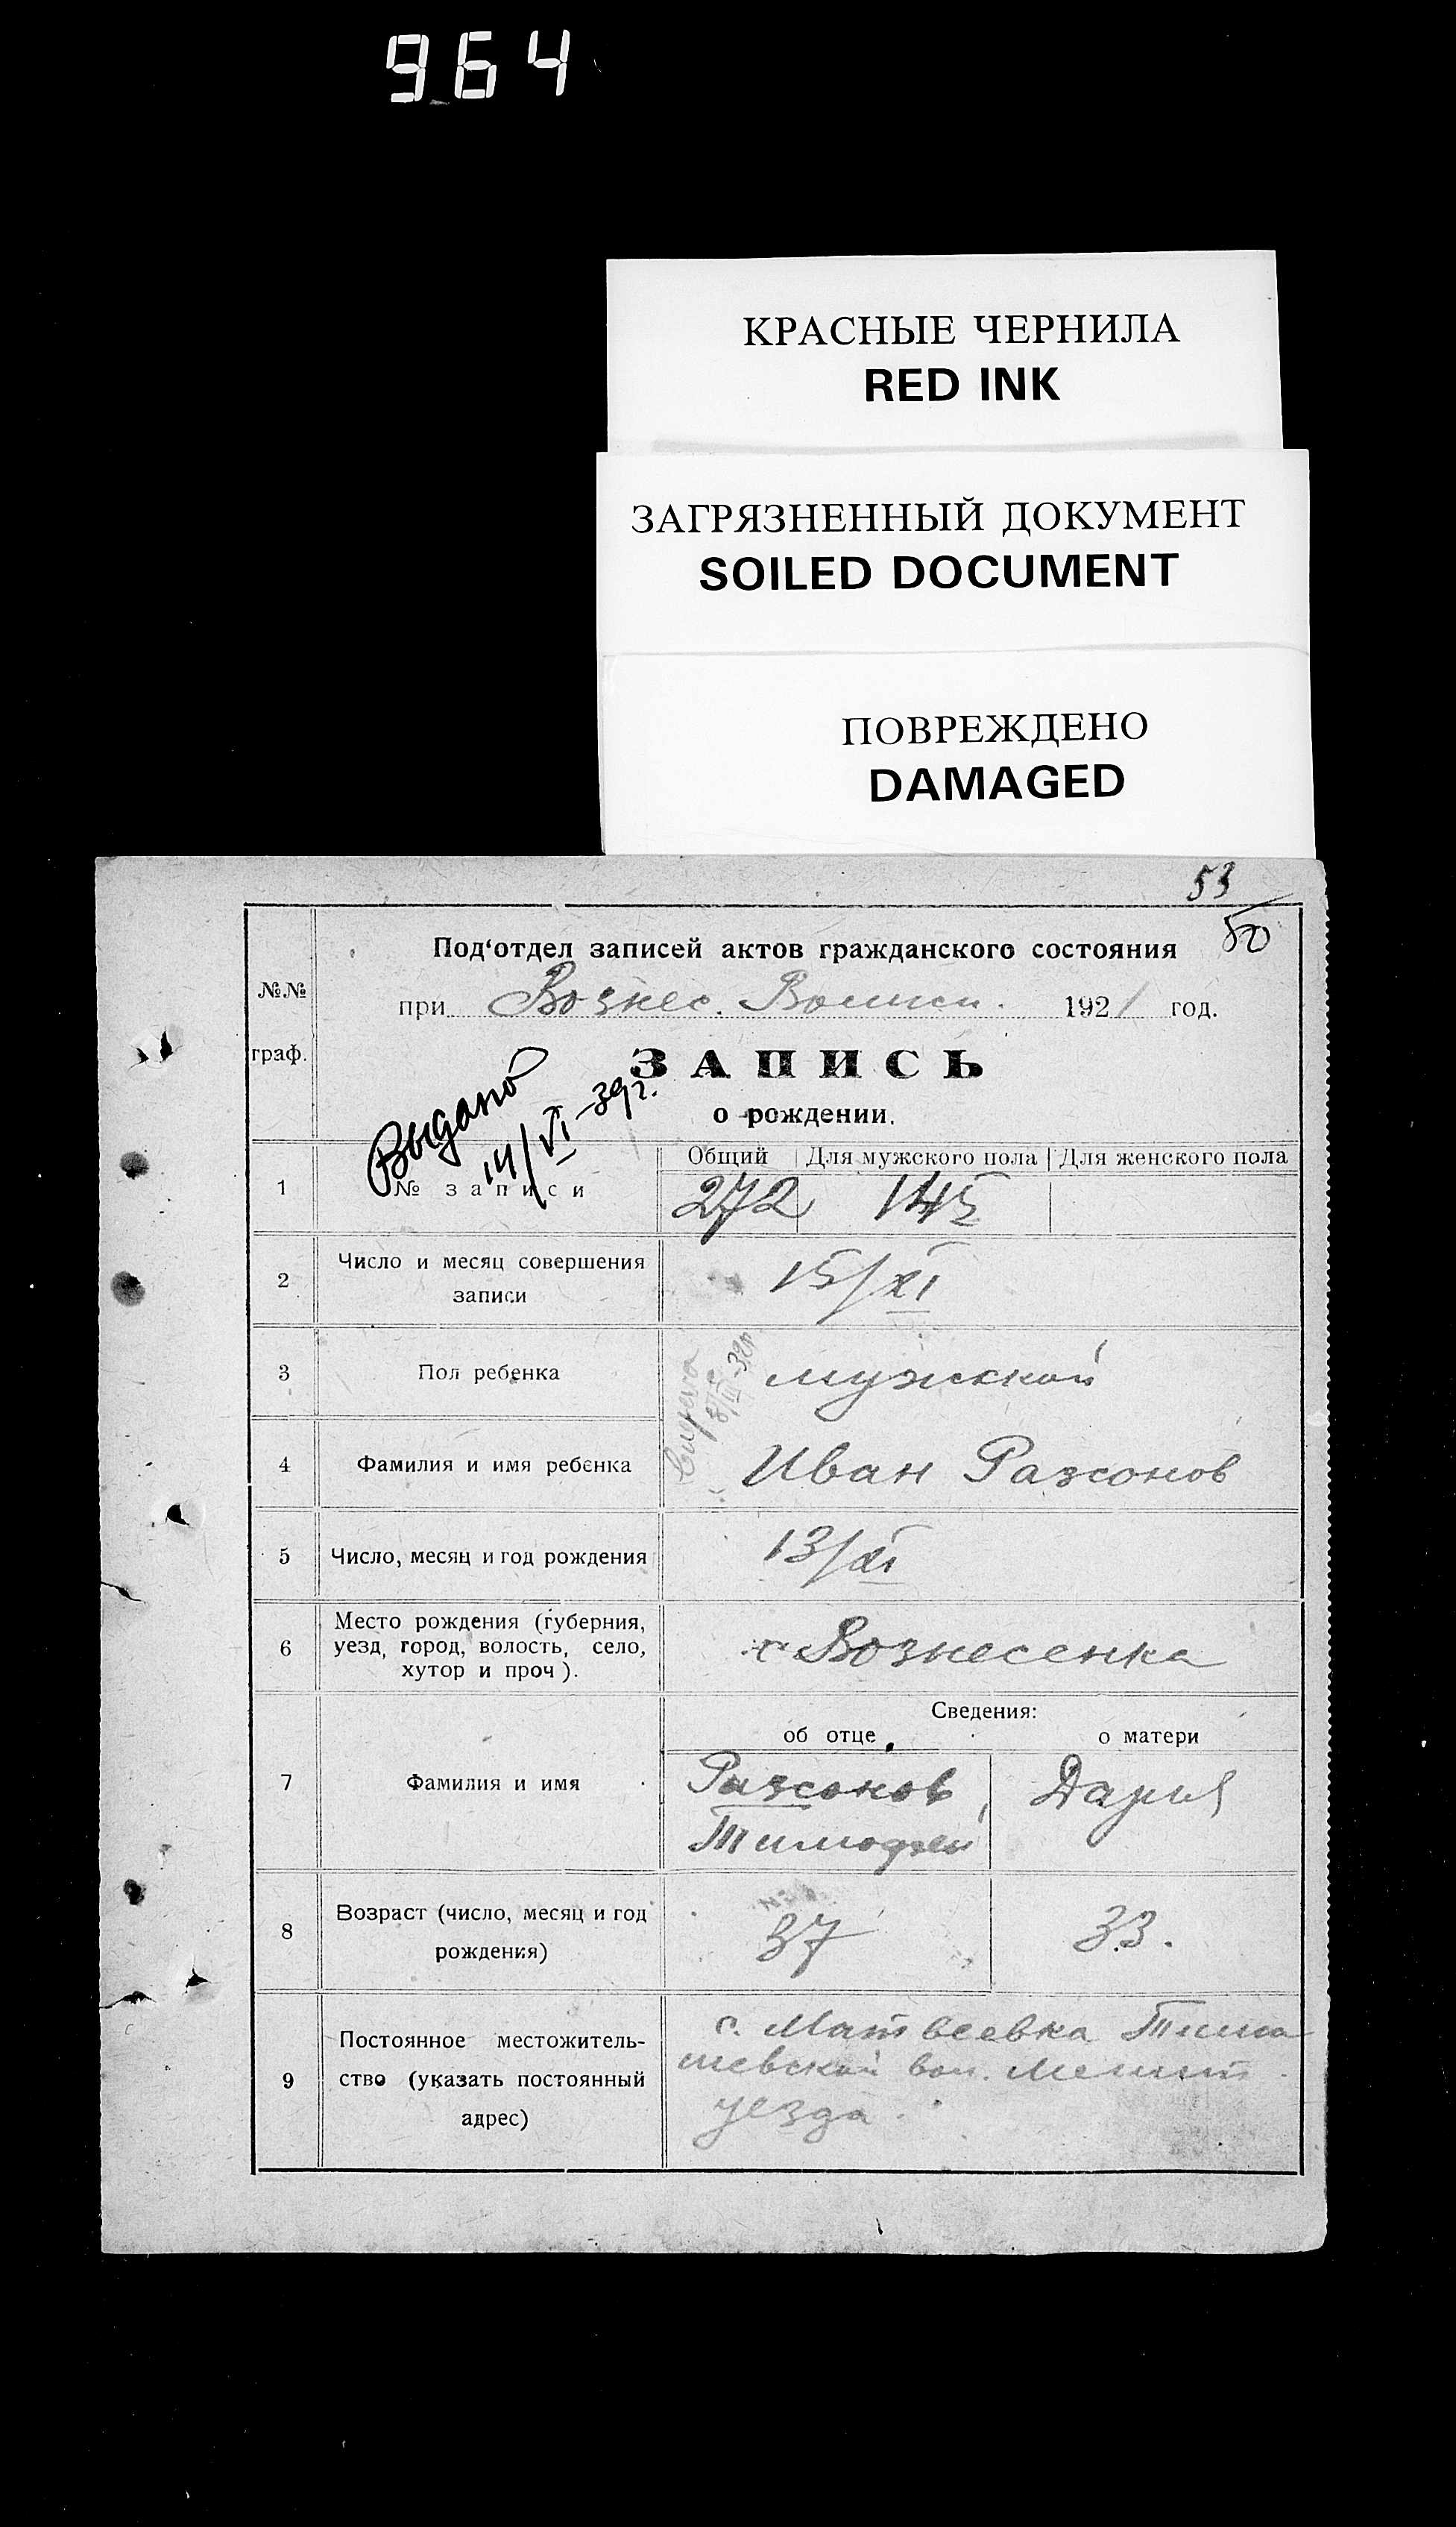 964
КРАСНЫЕ ЧЕРНИЛА
RED INK
ЗАГРЯЗНЕННЫЙ ДОКУМЕНТ
SOILED DOCUMENT
ПОВРЕЖДЕНО
DAMAGED
53
50
№№
граф.
Под‘отдел записей актов гражданского состояния
при Вознес. Волисп. 1921 год.
ЗАПИСЬ
о рождении.
Выдано
14/VI-39г.
Общий Для мужского пола Для женского пола
1 № записи 272 145
2 Число и месяц совершения
записи
15/XI
3 Пол ребенка мужской
4 Фамилия и имя ребенка Иван Разсонов
5 Число, месяц и год рождения 13/XI
6 Место рождения (губерния,
уезд, город, волость, село,
хутор и проч).
с Вознесенка
Сведения:
об отце о матери
7 Фамилия и имя Разсонов Дария
Тимофей
8 Возраст (число, месяц и год
рождения)
37 33.
9 Постоянное местожитель-
ство (указать постоянный
адрес)
с. Матвеевка Тима
шевской вол. Мелит.
уезда.